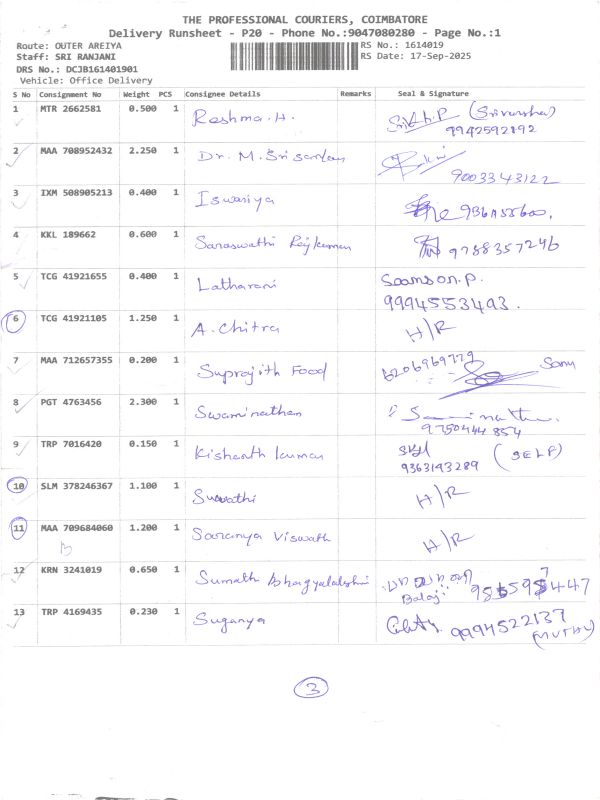 THE PROFESSIONAL COURIERS, COIMBATORE
Delivery Runsheet - P20 - Phone No.:9047080280 - Page No.:1
Route: OUTER AREIYA RS No.: 1614019
Staff: SRI RANJANI RS Date: 17-Sep-2025
DRS No.: DCJB161401901
Vehicle: Office Delivery
S No Consignment No Weight PCS Consignee Details Remarks Seal & Signature
1 MTR 2662581 0.500 1 Reshma.H.
9942592192
2 MAA 708952432 2.250 1 Dr. M. Srisanlan
9003343122
3 IXM 508905213 0.400 1 Iswariya
4 KKL 189662 0.600 1 Saraswathi Rajkumar 9788357246
5 TCG 41921655 0.400 1 Latharani Saamson.P.
9994553493.
6 TCG 41921105 1.250 1 A. Chitra H/R
7 MAA 712657355 0.200 1 Suprajith Food 6206969779 Sonu
8 PGT 4763456 2.300 1 Swaminathan
9750444854
9 TRP 7016420 0.150 1 Kishanth kumar (SELF)
9363143289
10 SLM 378246367 1.100 1 Suwathi H/R
11 MAA 709684060 1.200 1 Saranya Viswath H/R
B
12 KRN 3241019 0.650 1 Sumathi Bhagyalakshmi
Balaji
13 TRP 4169435 0.230 1 Suganya 9994522137
(MUTHU)
3